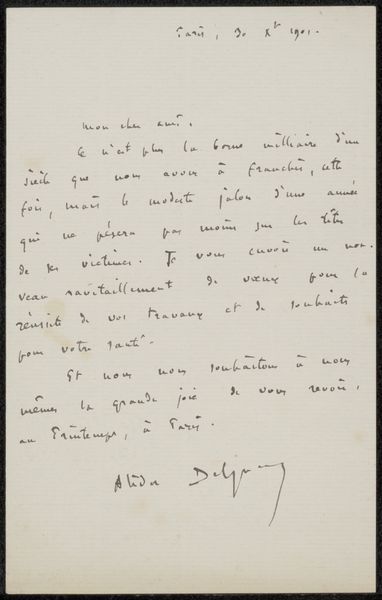 Paris, 30 Xbr 1901.
mon cher ami,
Ce n'est plus la borne milliaire d'un
siècle que nous avons à franchir, cette
fois, mais le modeste jalon d'une année
qui ne pèsera pas moins sur les têtes
de ses victimes. Je vous envoie un nou-
veau ravitaillement de vœux pour la
réussite de vos travaux et de souhaits
pour votre santé.
Et nous nous souhaitons à nous
mêmes la grande joie de vous revoir,
au Printemps, à Paris.